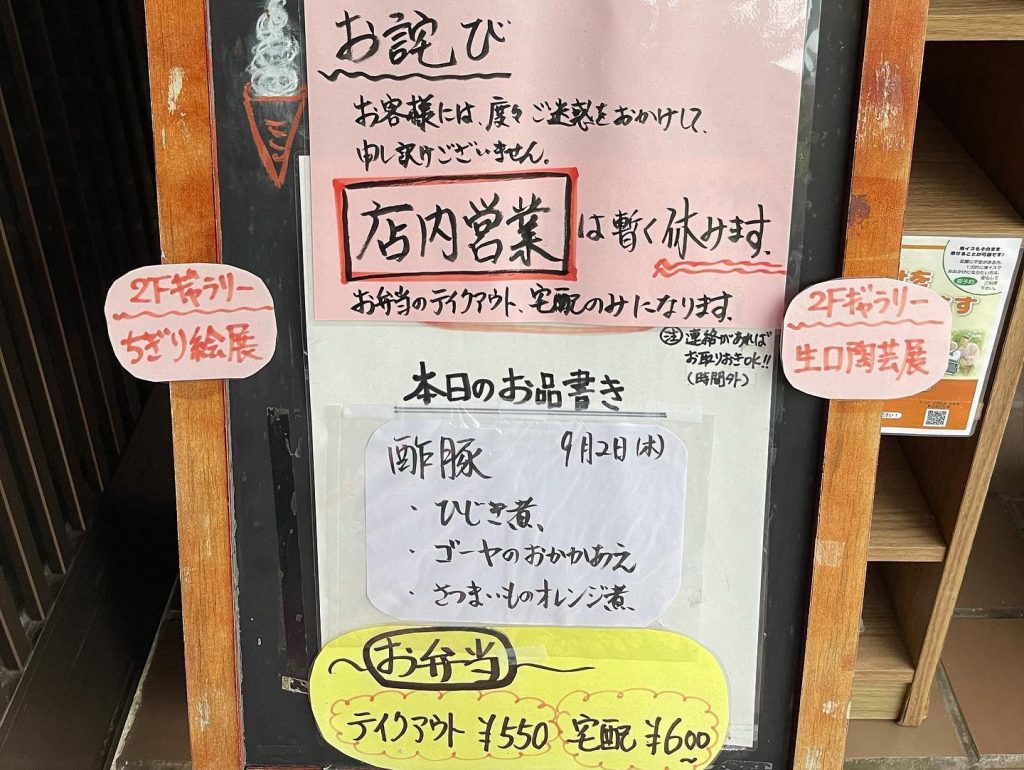 お詫び
お客様には、度々ご迷惑をおかけして、
申し訳けございません。
店内営業は暫く休みます。
お弁当のテイクアウト、宅配のみになります。
2Fギャラリー
ちぎり絵展
2Fギャラリー
生口陶芸展
注 連絡があれば
お取りおきOK!!
(時間外)
本日のお品書き
酢豚 9月2日(木)
・ひじき煮、
・ゴーヤのおかかあえ
・さつまいものオレンジ煮、
お弁当
テイクアウト ¥550 宅配 ¥600
車イスもそのまま
乗せることが可能です♪